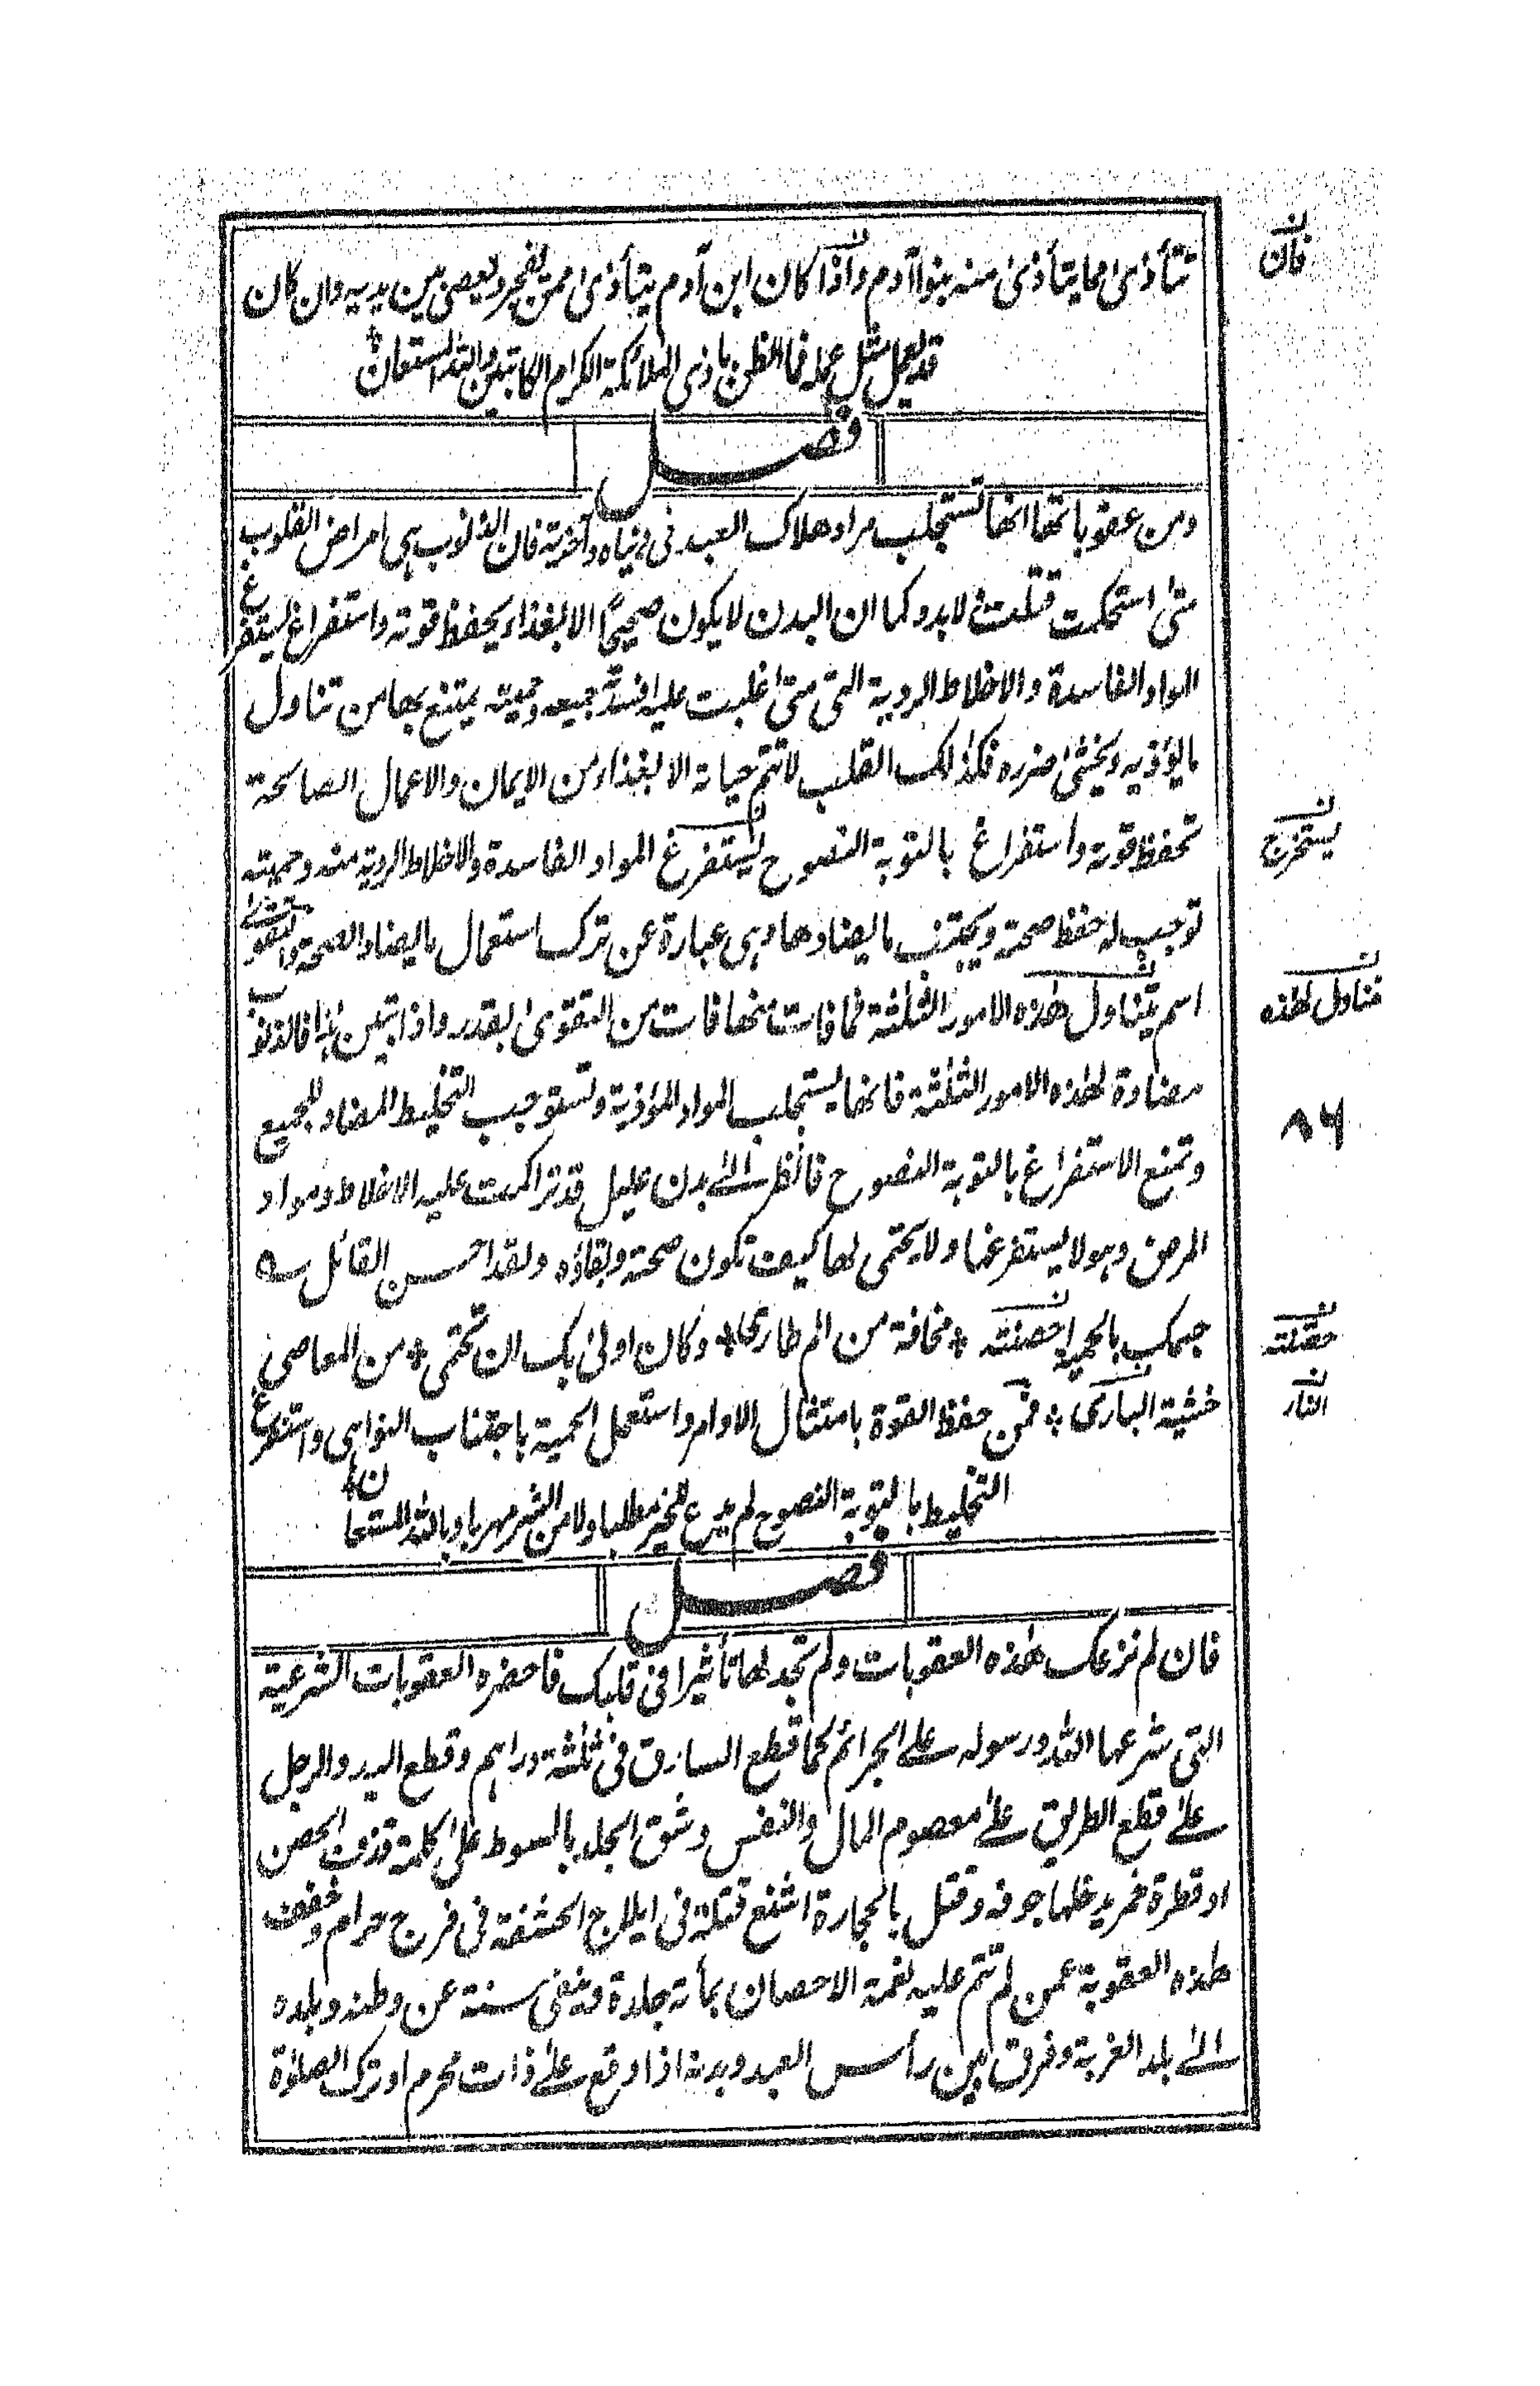 تتأذى مما يتأذى منه بنو آدم واذا كان ابن آدم يتأذى ممن يفجر ويعصى بين يديه وان كان
قد يعمل مثل عمله فما الظن باذى الملائكة الكرام الكاتبين والله المستعان
فصل
ومن عقوباتها انها تستجلب مواد هلاك العبد فى دنياه وآخرته فان الذنوب هى امراض القلوب
متى استحكمت قتلت ولابد وكما ان البدن لا يكون صحيحًا الا بغذاء يحفظ قوته واستفراغ يستفرغ
المواد الفاسدة والاخلاط الردية التى متى غلبت عليه افسدته جميعه وحمية يمتنع بها من تناول
ما يؤذيه ويخشى ضرره فكذلك القلب لا تتم حياته الا بغذاء من الايمان والاعمال الصالحة
تحفظ قوته واستفراغ بالتوبة النصوح يستفرغ المواد الفاسدة والاخلاط الردية منه وحمية
توجب له حفظ صحته ويجتنب ما يضادها وهى عبارة عن ترك استعمال ما يضاد الصحة والتقوى
اسم يتناول هذه الامور الثلثة فما فات منها فات من التقوى بقدره واذا تبين هذا فالذنوب
مضادة لهذه الامور الثلثة فانها يستجلب المواد المؤذية وتستوجب التخليط المضاد للجميع
وتمنع الاستفراغ بالتوبة النصوح فانظر الى بدن عليل قد تراكمت عليه الاخلاط ومواد
المرض وهو لا يستفرغها ولا يحتمى لها كيف تكون صحته وبقاؤه ولقد احسن القائل
جسمك بالحمية احصنته * مخافة من الم طارى * وكان اولى بك ان تحتمى * من المعاصى
خشية البارى * فمن حفظ القوة بامتثال الاوامر واستعمل الحمية باجتناب النواهى واستفرغ
التخليط بالتوبة النصوح لم يدع للخير مطلبا ولا من الشر مهربا وبالله المستعان
فصل
فان لم تزعك هذه العقوبات ولم تجد لها تأثيرا فى قلبك فاحضره العقوبات الشرعية
التى شرعها الله ورسوله على الجرائم كما قطع السارق فى ثلثة دراهم وقطع اليد والرجل
على قطع الطريق على معصوم المال والنفس وشق الجلد بالسوط على كلمة قذف المحصن
او قطرة خمر يدخلها جوفه وقتل بالحجارة اشنع قتلة فى ايلاج الحشفة فى فرج حرام وخفف
هذه العقوبة عمن لم تتم عليه نعمة الاحصان بمأة جلدة وينفى سنة عن وطنه وبلده
الى بلد الغربة وفرق بين رأس العبد وبدنه اذا وقع على ذات محرم او ترك الصلوة
فان
يستخرج
تتناول لهذه
٨٦
حصّلته
النار